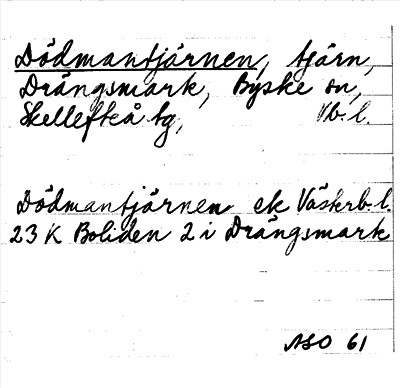 Dödmantjärnen, tjärn,
Drängsmark, Byske sn,
Skellefteå tg, Vb. l.
Dödmantjärnen ek Västerb. l.
23 K Boliden 2 i Drängsmark
ASO 61